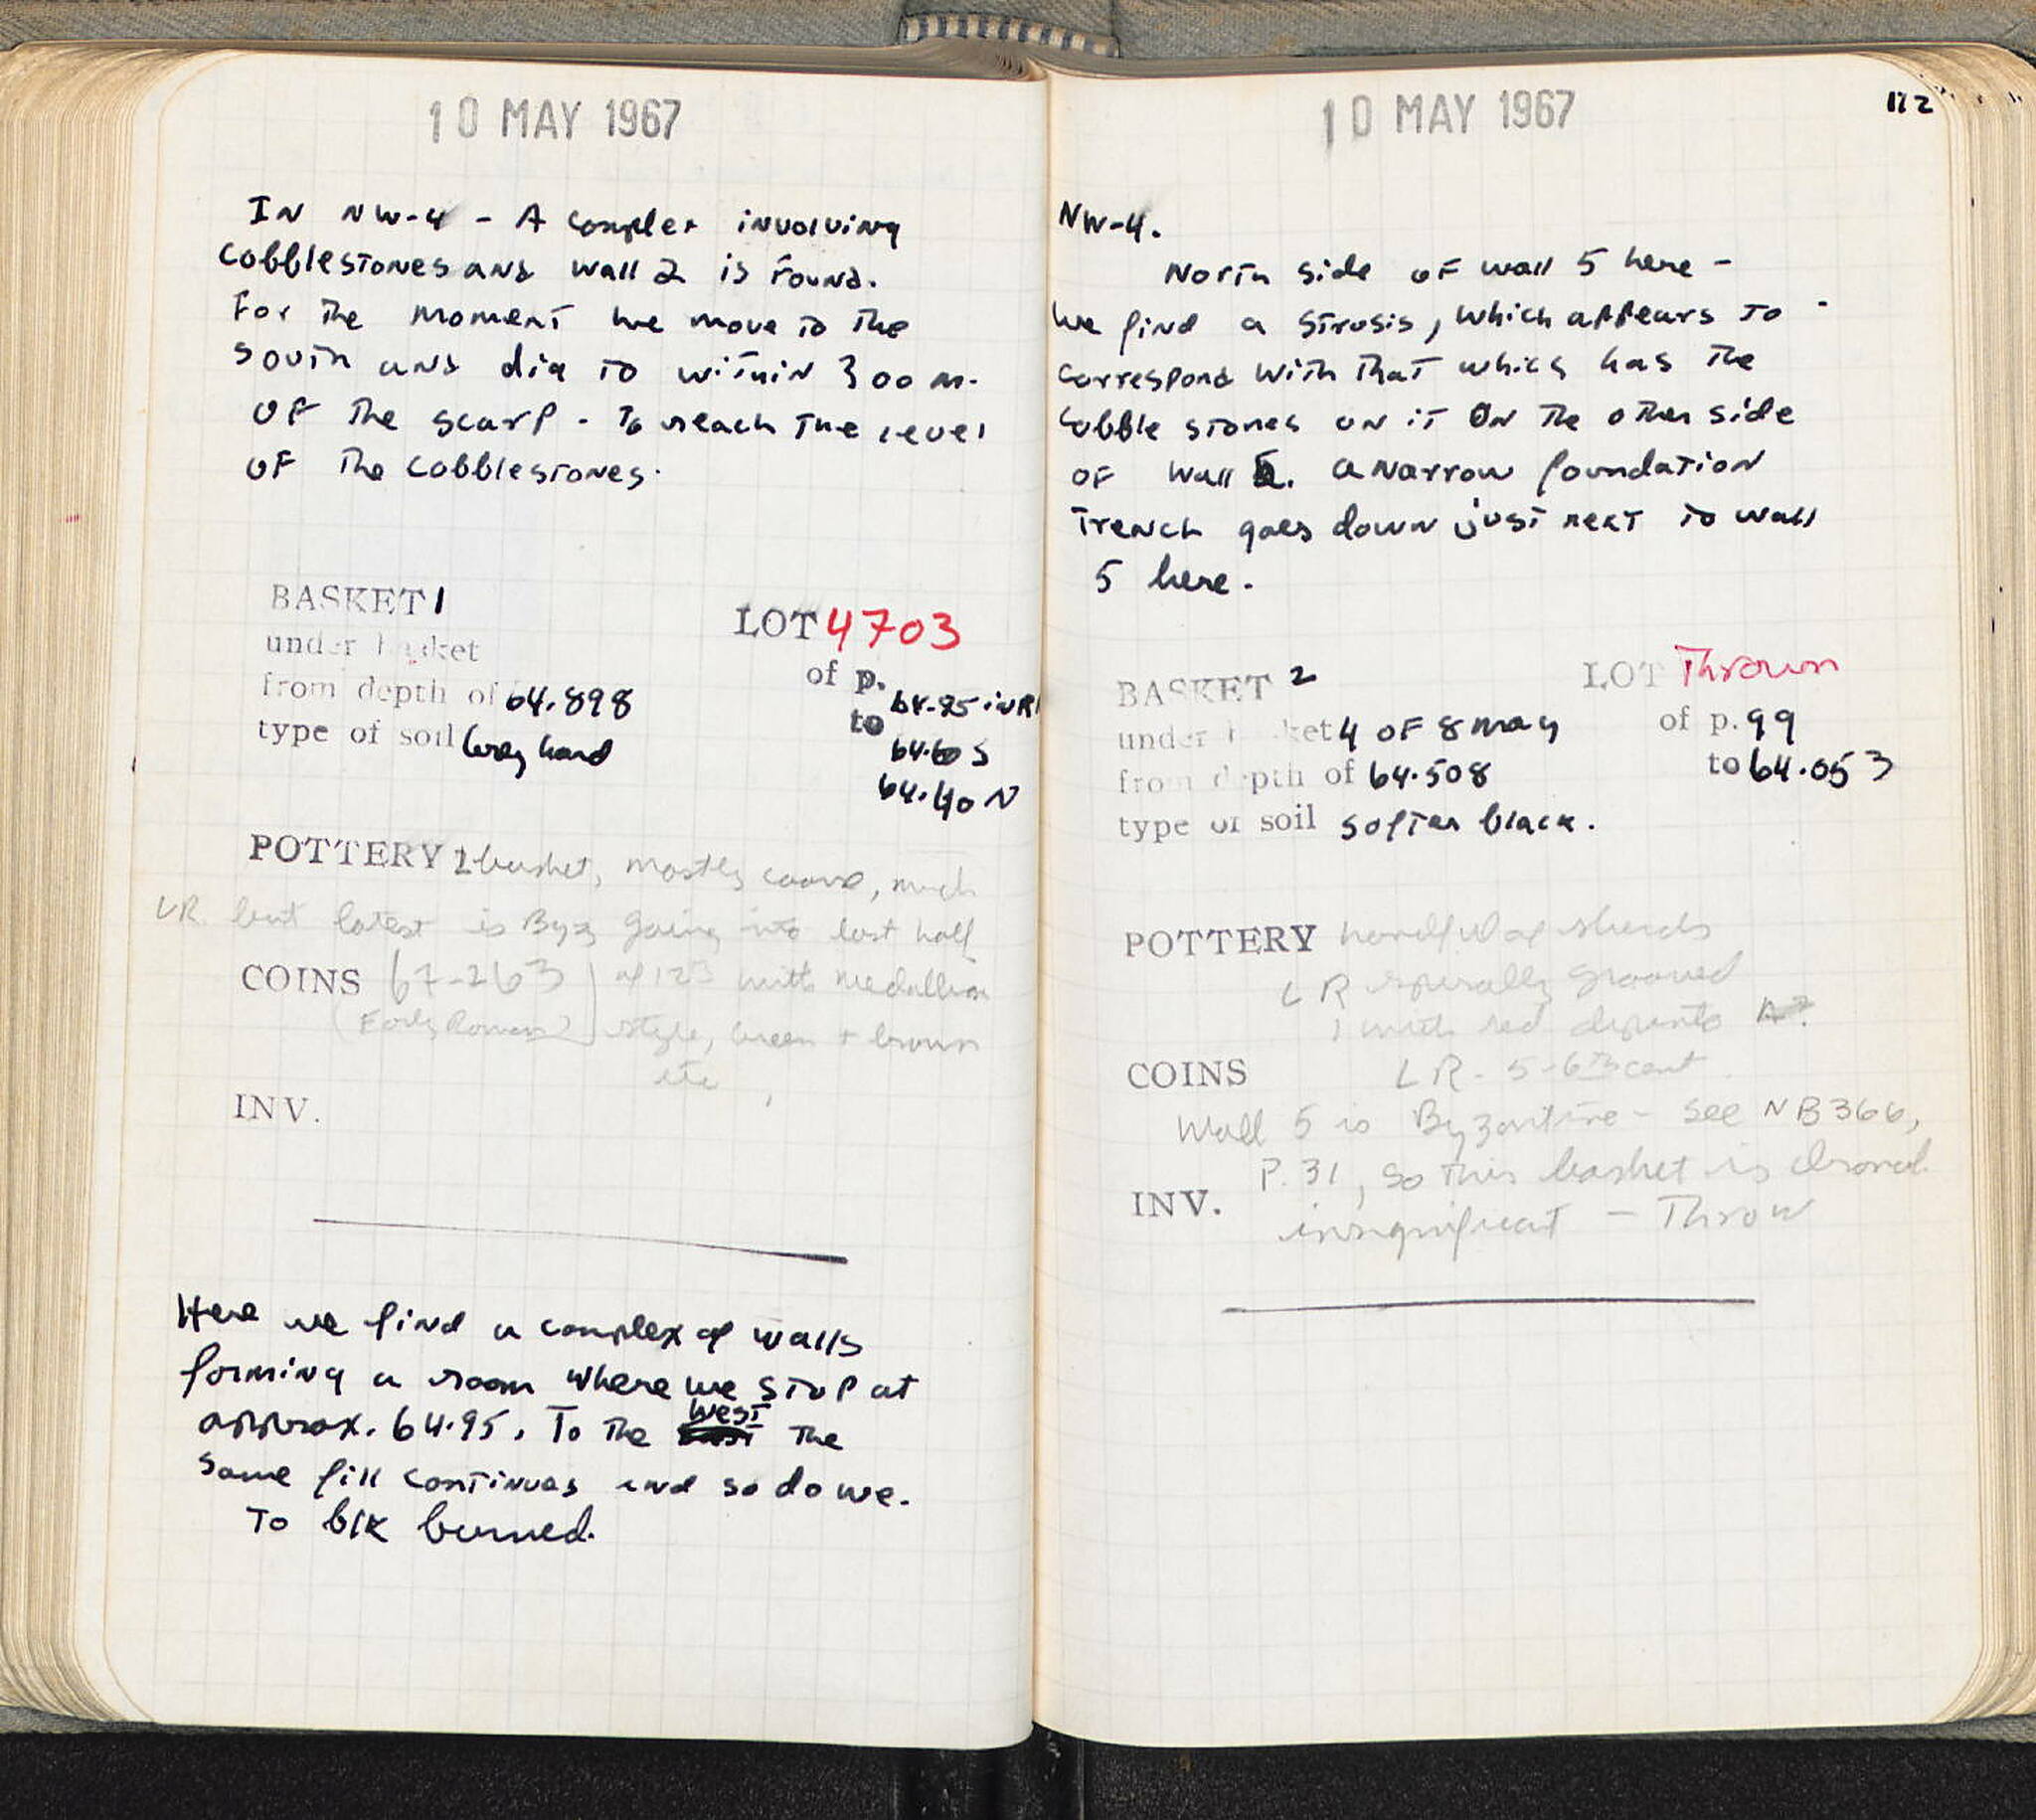 10 MAY 1967
IN NW-4 - A complex involving
cobblestones and wall 2 is found.
For the moment we move to the
south and dig to within 3.00 m.
of the scarp - To reach the level
of the cobblestones.
BASKET 1
LOT 4703
under basket
of p.
from depth of 64.898
to 64.95 in R
type of soil Grey hard
64.60 S
64.40 N
POTTERY 1 basket, mostly coarse, much
LR but latest is Byz going into last half
COINS 67-263 of 12th with medallion
(Early Roman?) style, green + brown
etc
INV.
Here we find a complex of walls
forming a room where we stop at
approx. 64.95. To the west the
same fill continues and so do we.
To blk burned.
10 MAY 1967
112
NW-4.
North side of wall 5 here -
we find a strosis, which appears to
correspond with that which has the
cobble stones on it on the other side
of wall 5. A narrow foundation
trench goes down just next to wall
5 here.
BASKET 2
LOT Thrown
under basket 4 of 8 May
of p. 99
from depth of 64.508
to 64.053
type of soil softer black.
POTTERY handful of sherds
LR spirally grooved
1 with red
COINS LR - 5-6th cent.
Wall 5 is Byzantine - see NB 366,
P. 31, so this basket is
INV. insignificant - Throw